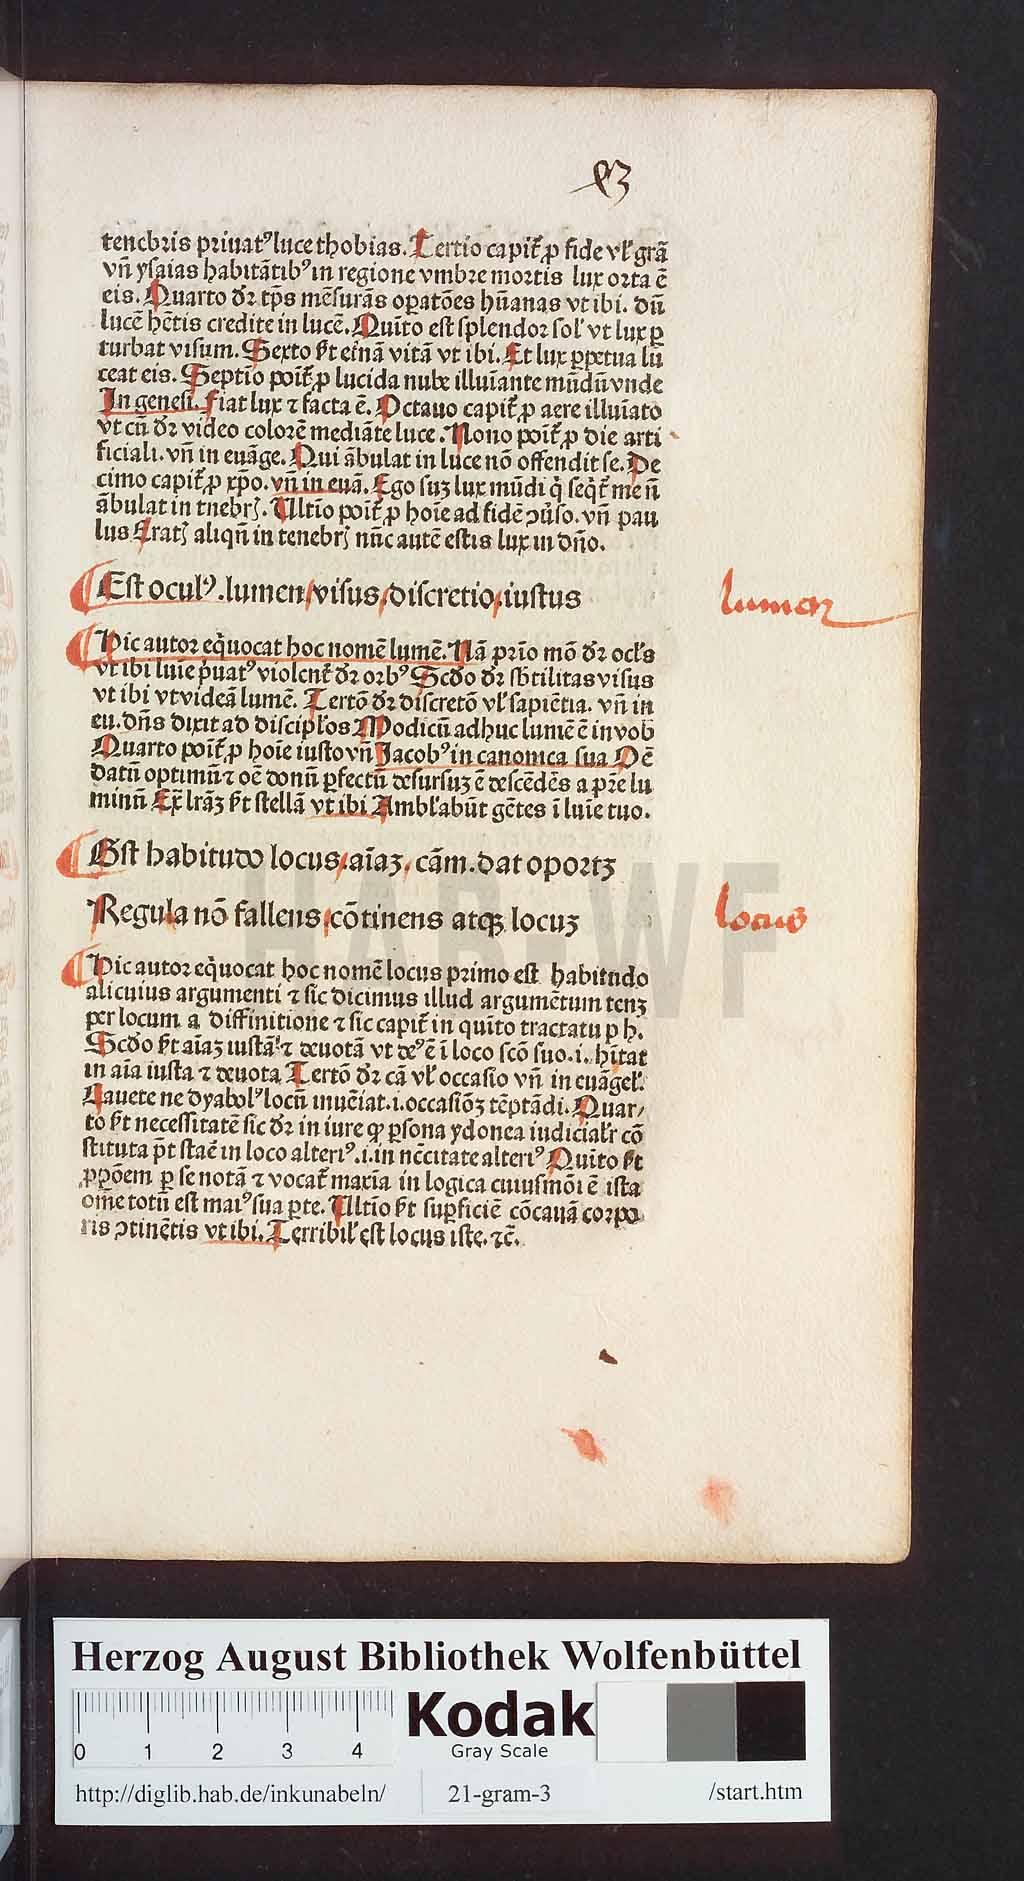 93
tenebris priuatꝰ luce thobias. Tertio capit̃ ꝓ fide vl̃ grã
vñ ysaias habitãtibꝰ in regione vmbre mortis lux orta ẽ
eis. Quarto dr̃ tp̃s mẽsurãs oꝑatões hũanas vt ibi. dũ
lucẽ hẽtis credite in lucẽ. Quĩto est splendor sol̃ vt lux ꝑ
turbat visum. Sexto ſt eĩnã vitã vt ibi. Et lux ꝑpetua lu
ceat eis. Septĩo põit̃ ꝓ lucida nube illuĩante mũdũ vnde
In genesi. fiat lux ⁊ facta ẽ. Octauo capit̃ ꝓ aere illuĩato
vt cũ dr̃ video colorẽ mediãte luce. Nono põit̃ ꝓ die arti
ficiali. vñ in euãge. Qui ãbulat in luce nõ offendit se. De
cimo capit̃ ꝓ xp̃o. vñ in euã. Ego suꝫ lux mũdi q̇ seq̇t̃ me ñ
ãbulat in tnebrꝭ. Ultĩo põit̃ ꝓ hoĩe ad fidẽ ꝯuſ̃o. vñ pau
lus Eratꝭ aliqñ in tenebrꝭ nũc autẽ estis lux in dño.
¶ Est oculꝰ. lumen / visus / discretio / iustus
lumen
¶ Hic autor eq̇uocat hoc nomẽ lumẽ. Nã prĩo mõ dr̃ ocl̃s
vt ibi luĩe p̃uatꝰ violent̃ dr̃ orbꝰ Scd̃o dr̃ sb̃tilitas visus
vt ibi vt videã lumẽ. Tertõ dr̃ discretõ vl̃ sapiẽtia. vñ in
eu. dñs dixit ad discipl̃os Modicũ adhuc lumẽ ẽ in vob̃
Quarto põit̃ ꝓ hoĩe iusto vñ Jacobꝰ in canonica sua Oẽ
datũ optimũ ⁊ oẽ donũ ꝑfectũ desursuꝫ ẽ descẽdẽs a pr̃e lu
minũ Ex̃ lr̃aꝫ ſt stellã vt ibi Ambl̃abũt gẽtes ĩ luĩe tuo.
¶ Est habitudo locus / aĩaꝫ / cãm. dat oportꝫ
Regula nõ fallens / cõtinens atqꝫ locuꝫ
locus
¶ Hic autor eq̇uocat hoc nomẽ locus primo est habitudo
alicuius argumenti ⁊ sic dicimus illud argumẽtum tenꝫ
per locum a diffinitione ⁊ sic capit̃ in quĩto tractatu p h.
Scd̃o ſt aĩaꝫ iustã ⁊ deuotã vt deꝰ ẽ ĩ loco scõ suo. i. hĩtat
in aĩa iusta ⁊ deuota Tertõ dr̃ cã vl̃ occasio vñ in euãgel̃.
Cauete ne dyabolꝰ locũ inuẽiat. i. occasiõꝫ tẽptãdi. Quar/
to ſt necessitatẽ sic dr̃ in iure qꝫ ꝑsona ydonea iudicialr̃ cõ
stituta põt staẽ in loco alteriꝰ. i. in nc̃citate alteriꝰ Quĩto ſt
ꝓpõem ꝑ se notã ⁊ vocat̃ maxĩa in logica cuiusmõi ẽ ista
om̃e totũ est maiꝰ sua ꝑte. Ultĩo ſt suꝑficiẽ cõcauã corpo
ris ꝯtinẽtis vt ibi. Terribil̃ est locus iste. ⁊c̃.
HAB WF
Herzog August Bibliothek Wolfenbüttel
0 1 2 3 4
Kodak
Gray Scale
http://diglib.hab.de/inkunabeln/ 21-gram-3 /start.htm